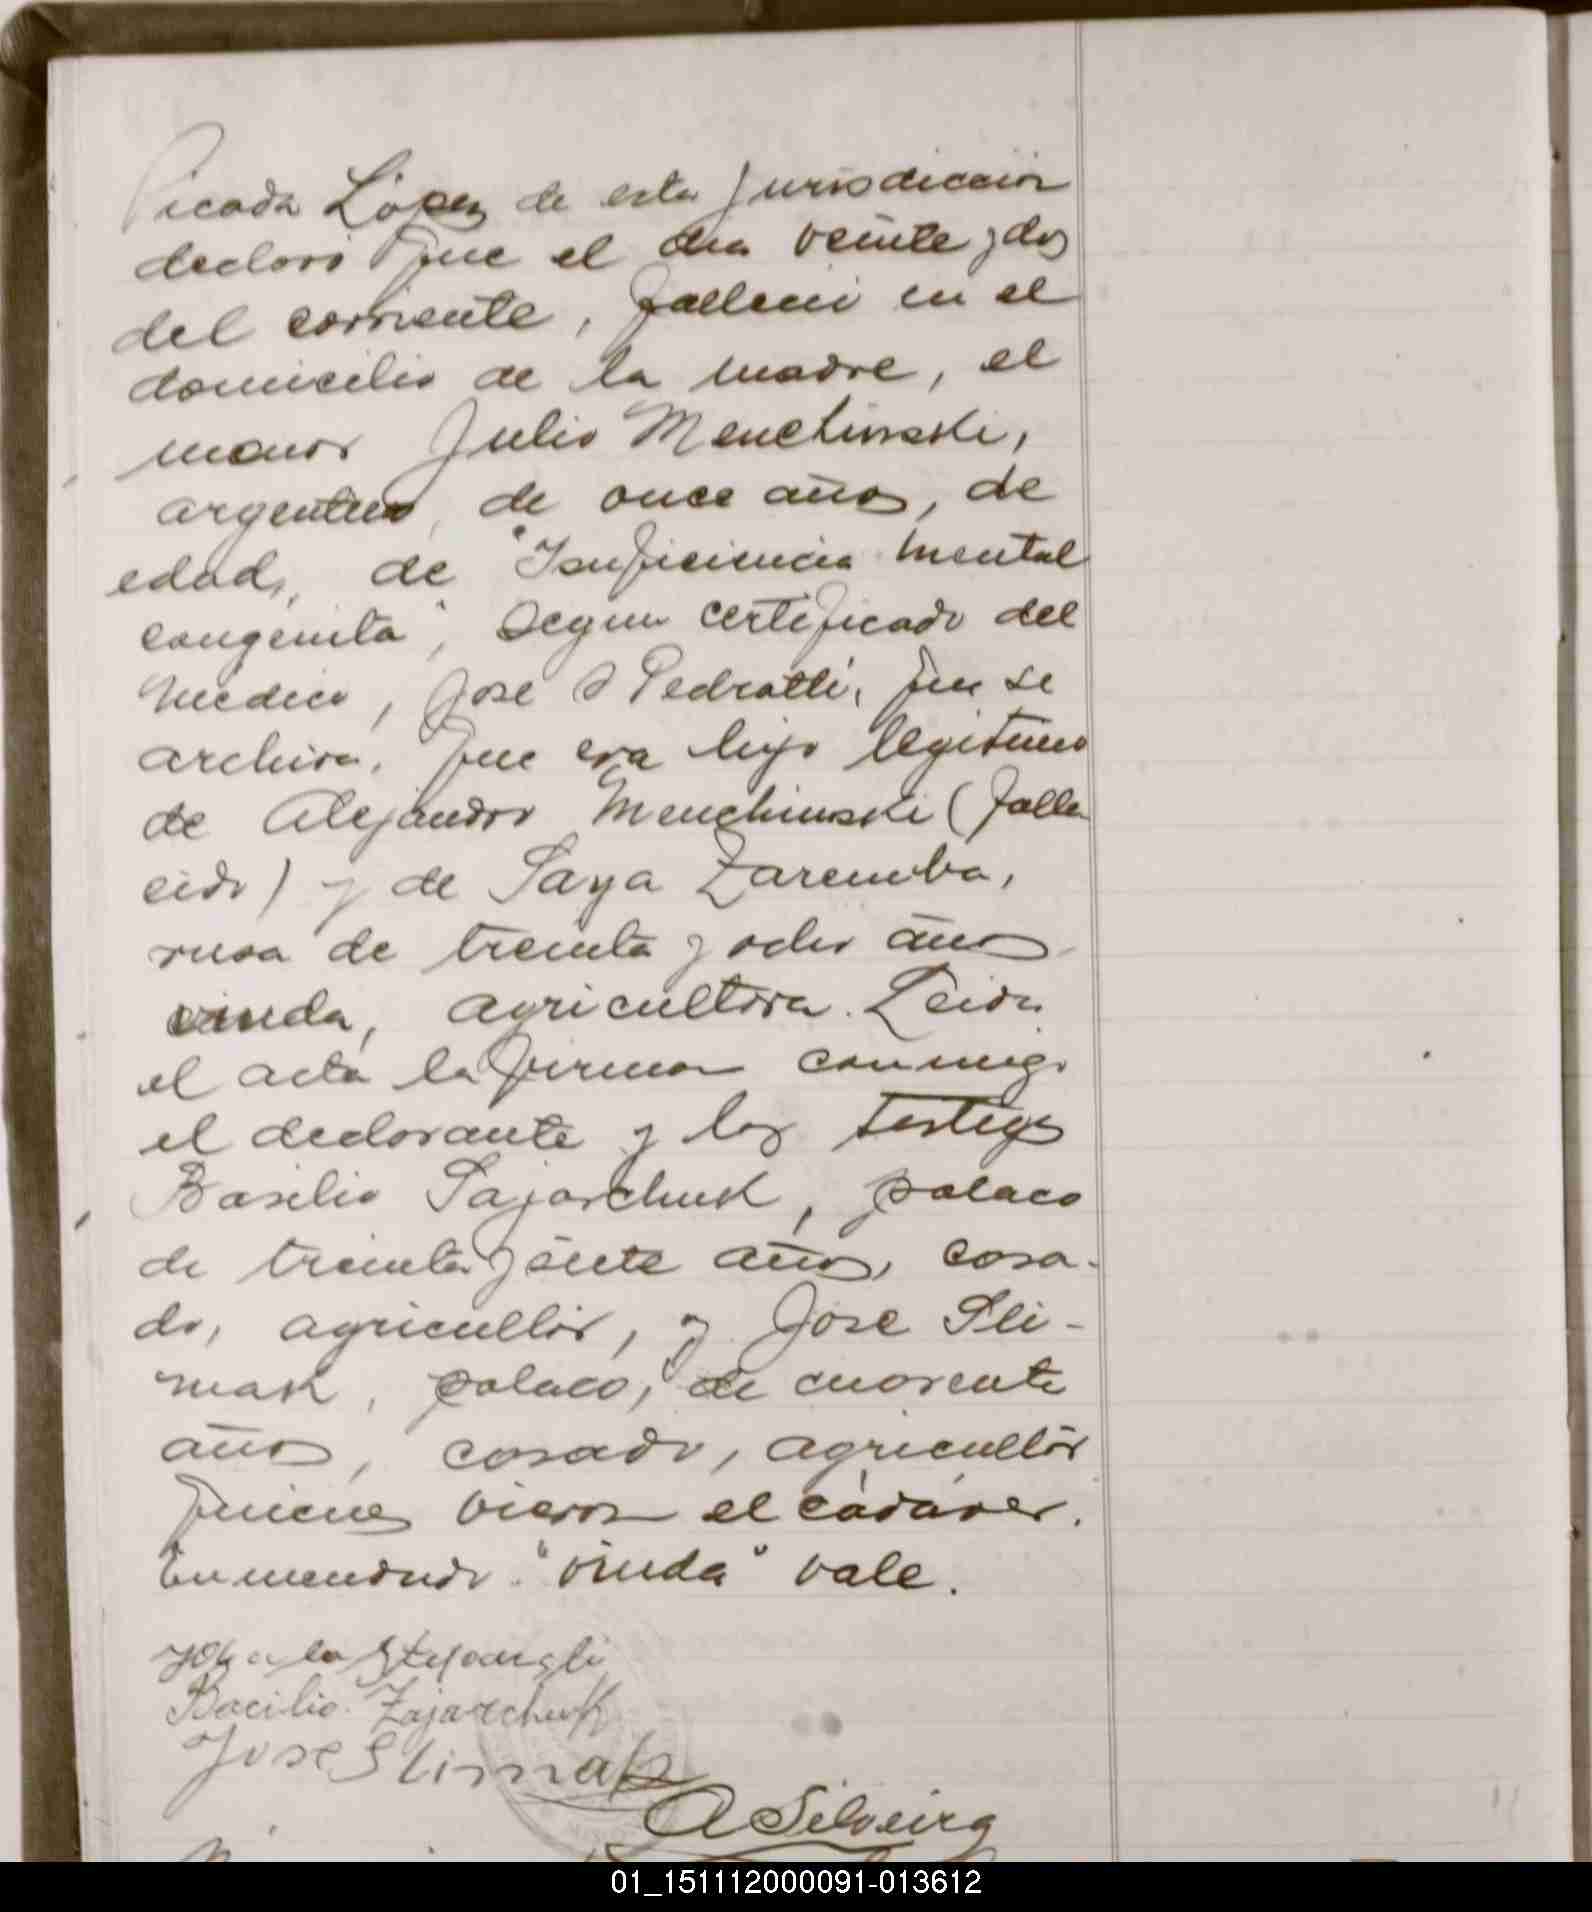 Picada López de esta jurisdicción
declaró que el dia veinte y dos
del corriente, falleció en el
domicilio de la madre, el
menor Julio Menchinski,
argentino, de once años, de
edad, de "Insuficiencia mental
congenita", segun certificado del
medico, José Pedratti, que se
archiva. Que era hijo legitimo
de Alejandro Menchinski (falle
cido) y de Saya Zaremba,
rusa de treinta y ocho años
viuda, agricultora. Leida
el acta la firman conmigo
el declarante y los testigos
Basilio Sajarchuk, polaco
de treinta y siete años, casa-
do, agricultor, y José Sli-
mak, polaco, de cuarenta
años, casado, agricultor
quienes vieron el cadáver.
Enmendado "viuda" vale.
Bacilio Zajarchuk
Jose Slimak
A Silveira
01_151112000091-013612